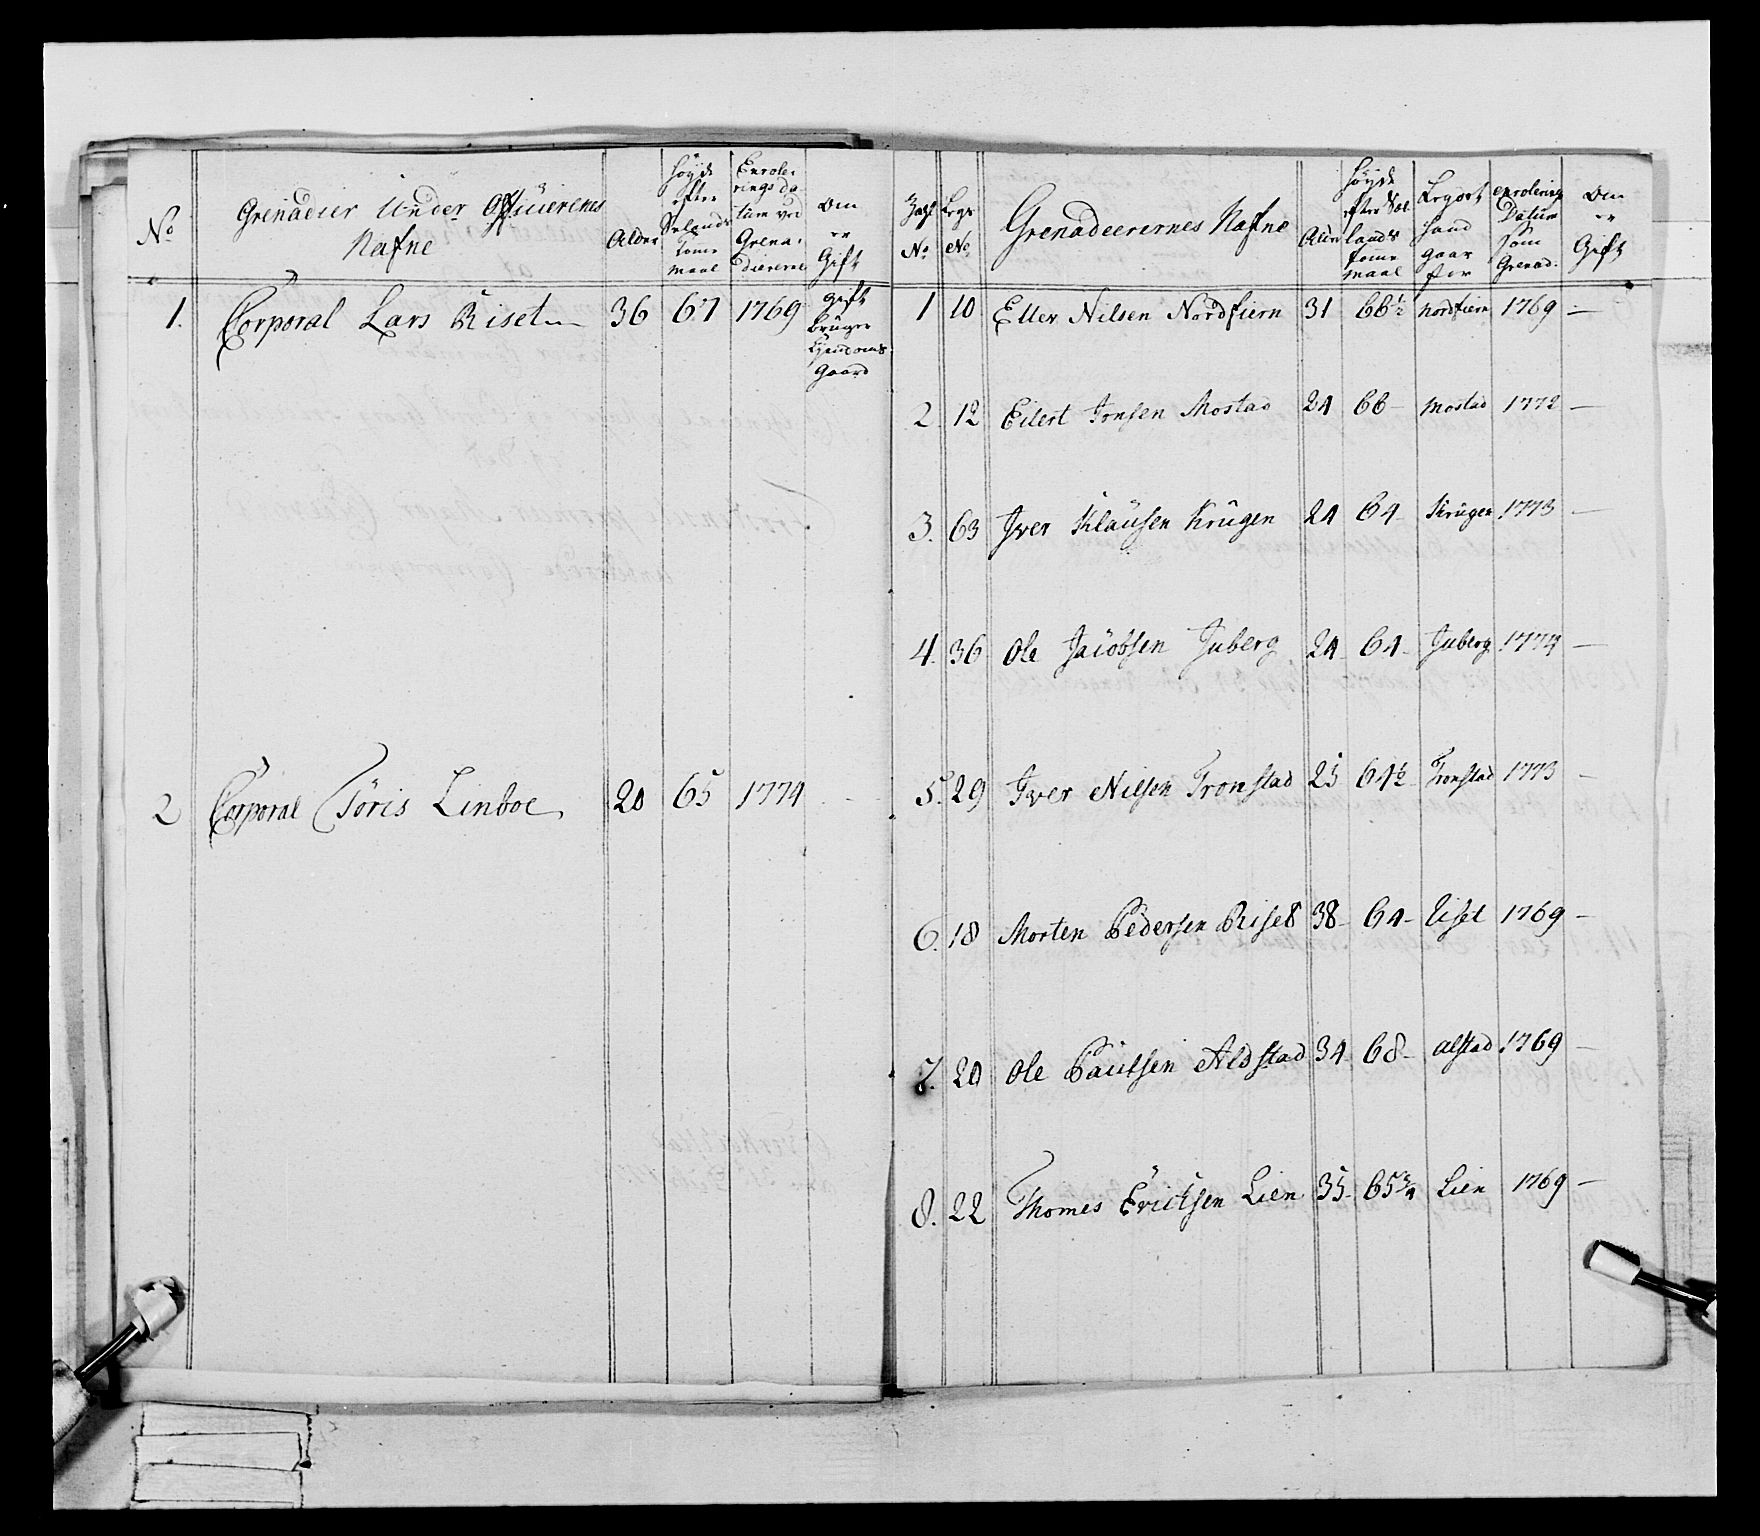 No
Grenadier Under Officerenes
Nafne
Alder
Høyde
efter
Selands
Tome
maal
Enrole-
rings da-
tum ved
Grena-
diererne
Om
er
Gift
1. Corporal Lars Riset 36 67 1769 gift
bruger
Gaard
2 Corporal Töris Linboe 20 65 1774
No
Legs
No
Grenadeerernes Nafne
Alder
Høyde
efter Sæl-
lands
tome
maal
Legort
hand
gaar
for
enrolering
Datum
som
Grenad.
Om
er
Gift
1 10 Eller Nilsen Nordfiern 31 66½ Nordfiern 1769 —
2 12 Eilert Jonsen Mostad 24 66 — Mostad 1772 —
3. 63 Iver Klaüsen Krügen 24 64 — Krügen 1773 —
4. 36 Ole Jacobsen Juberg 24 64 — Juberg 1774 —
5. 29 Iver Nilsen Tronstad 25 64½ Tronstad 1773 —
6. 18 Morten Pedersen Riset 38 — 64 — Riset 1769 —
7. 20 Ole Paulsen Aldstad 34 68 — alstad 1769 —
8. 22 Thomes Ericksen Lien 35 — 65¾ Lien 1769 —